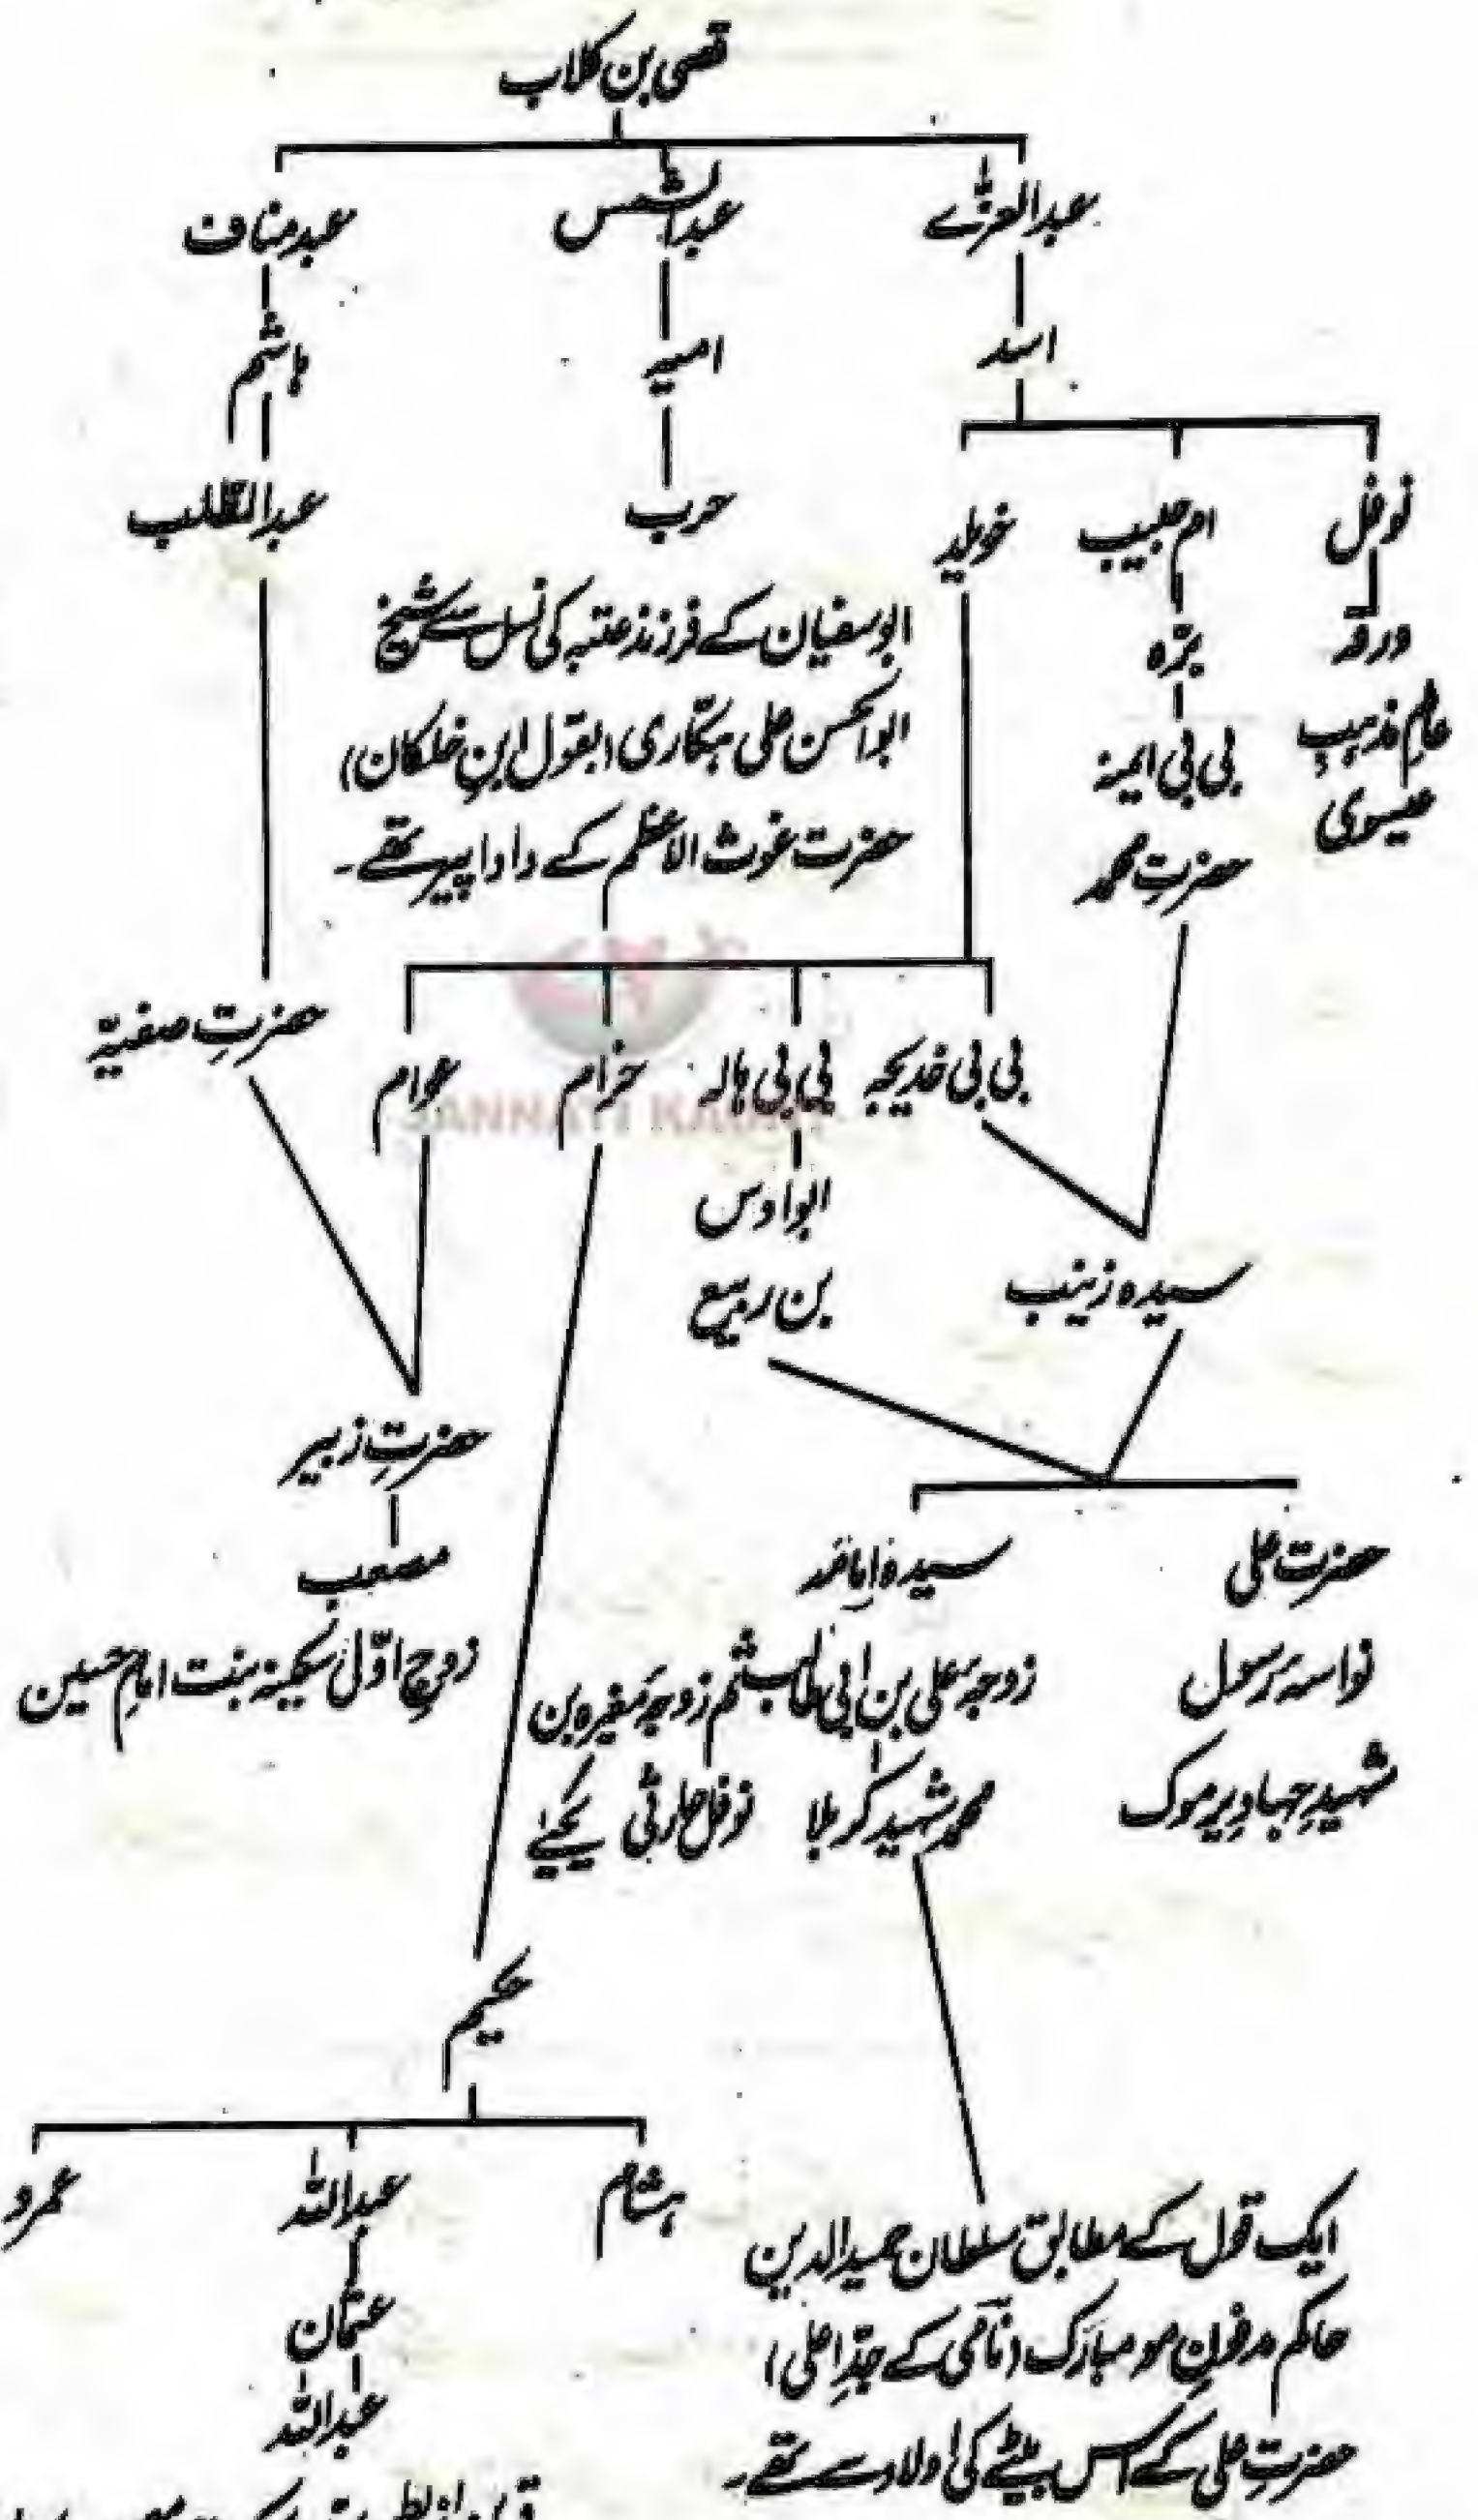 قصی بن کلاب
عبدالعزّے
عبدالشمس
عبد مناف
اسد
امیہ
ہاشم
نوفل
ام حبیب
خویلد
حرب
عبدالمطّلب
ورقہ
عالمِ مذہبِ
عیسوی
برّہ
بی بی ایمنہ
حضرتِ محمد
ابوسفیان کے فرزند عتبہ کی نسل سے شیخ
ابوالحسن علی ہنکّاری (بقول ابنِ خلکان)
حضرت غوث الاعظم کے دادا پیر تھے۔
بی بی خدیجہ
بی بی ہالہ
حزام
عوام
حضرتِ صفیہ
ابواوس
بن ربیع
سیدہ زینب
حضرتِ زبیر
مصعب
زوجِ اوّل سکینہ بنت امام حسین
حضرت علی
نواسہ رسول
شہیدِ جہادِ یرموک
سیدہ امامہ
زوجہ علی بن ابی طالب ثم زوجہ مغیرہ بن
نوفل حارثی
یحیٰے
محمد شہیدِ کربلا
حکیم
ہشام
عبداللہ
عمرو
عثمان
عبداللہ
ایک قول کے مطابق سلطان حمید الدین
حاکم مدفونِ مو مبارک (نامی کے جدِّ اعلی)
حضرتِ علی کے اس بیٹے کی اولاد سے تھے۔
SANNATI KA